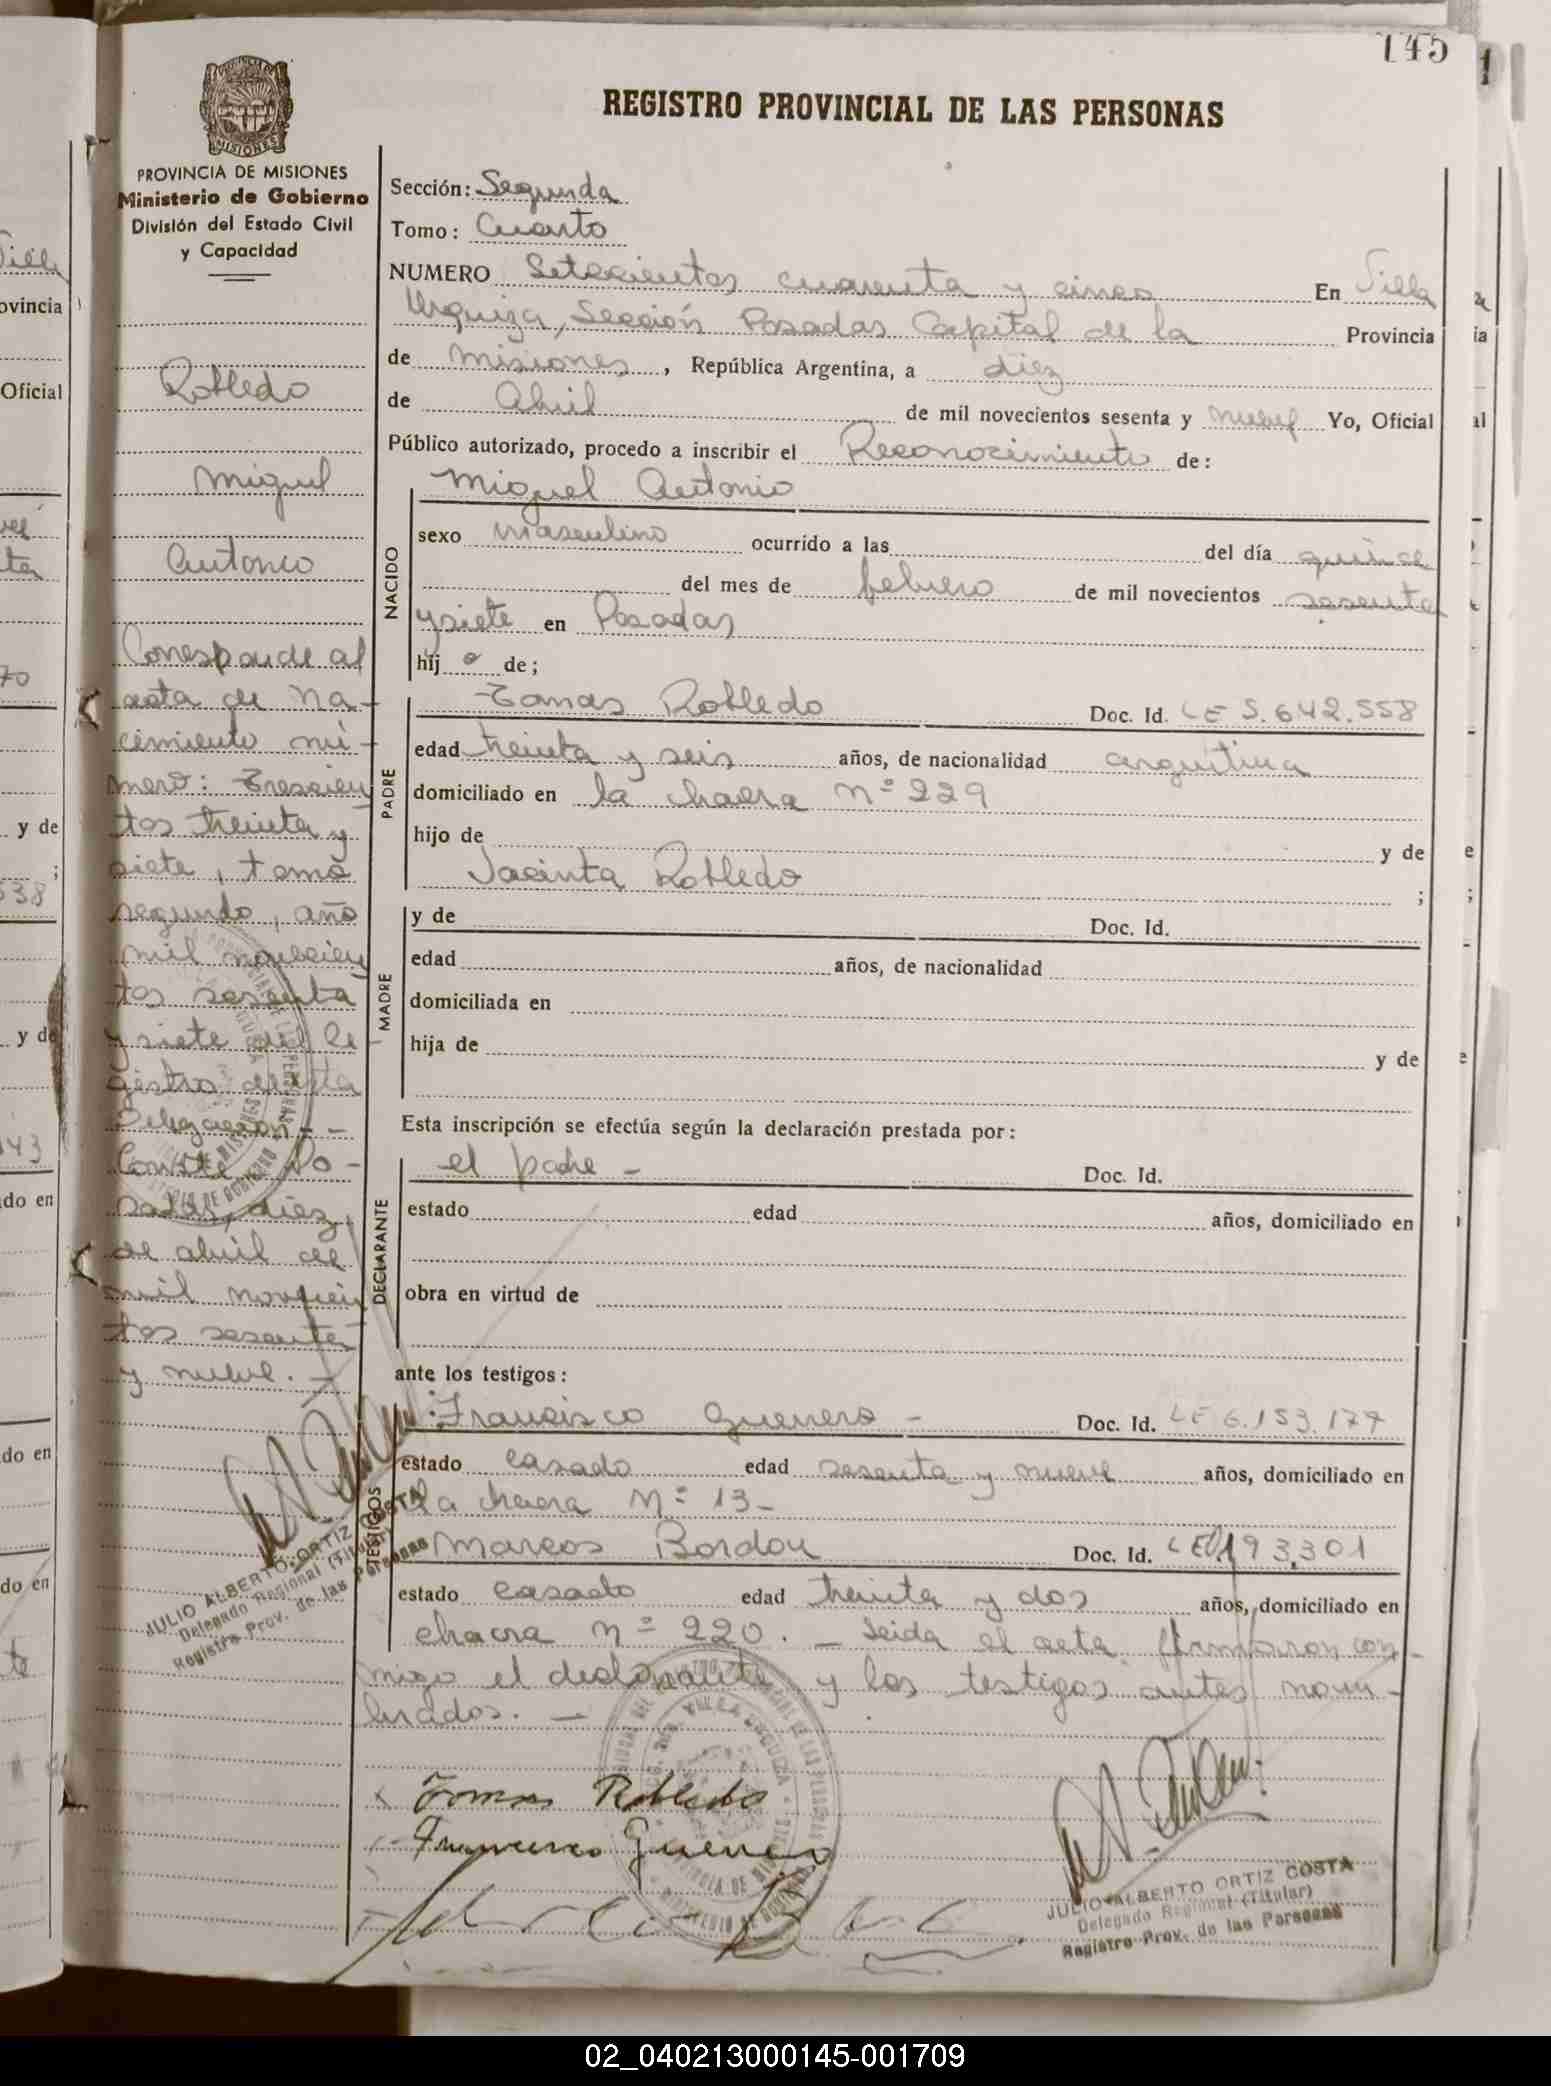 145
REGISTRO PROVINCIAL DE LAS PERSONAS
PROVINCIA DE MISIONES
Ministerio de Gobierno
División del Estado Civil
y Capacidad
Robledo
Miguel
Antonio
Corresponde al
acta de Na-
cimiento nú-
mero: Trescien
tos treinta y
siete, tomo
segundo, año
mil novecien
tos sesenta
y siete del Re-
gistro de esta
Delegación.-
Conste Po-
sadas, diez
de abril de
mil novecien
tos sesenta
y nueve.-
JULIO ALBERTO ORTIZ COSTA
Delegado Regional (Titular)
Registro Prov. de las Personas
Sección: Segunda
Tomo: Cuarto
NUMERO Setecientos cuarenta y cinco En Villa
Urquiza, Sección Posadas Capital de la Provincia
de Misiones, República Argentina, a diez
de Abril de mil novecientos sesenta y nueve Yo, Oficial
Público autorizado, procedo a inscribir el Reconocimiento de:
NACIDO
Miguel Antonio
sexo masculino ocurrido a las del día quince
del mes de febrero de mil novecientos sesenta
y siete en Posadas
hij o de;
PADRE
Tomas Robledo Doc. Id. LE 5.642.558
edad treinta y seis años, de nacionalidad argentina
domiciliado en la chacra nº 229
hijo de y de
Jacinta Robledo ;
MADRE
y de Doc. Id.
edad años, de nacionalidad
domiciliada en
hija de y de
Esta inscripción se efectúa según la declaración prestada por:
DECLARANTE
el padre - Doc. Id.
estado edad años, domiciliado en
obra en virtud de
ante los testigos:
TESTIGOS
Francisco Guerrero - Doc. Id. LE 6.153.177
estado casado edad sesenta y nueve años, domiciliado en
la chacra Nº 13-
Marcos Bordon Doc. Id. LE 193.301
estado casado edad treinta y dos años, domiciliado en
chacra Nº 220. - Leida el acta firmaron con
migo el declarante y los testigos antes nom-
brados. -
Tomas Robledo
Francisco Guerrero
JULIO ALBERTO ORTIZ COSTA
Delegado Regional (Titular)
Registro Prov. de las Personas
02_040213000145-001709